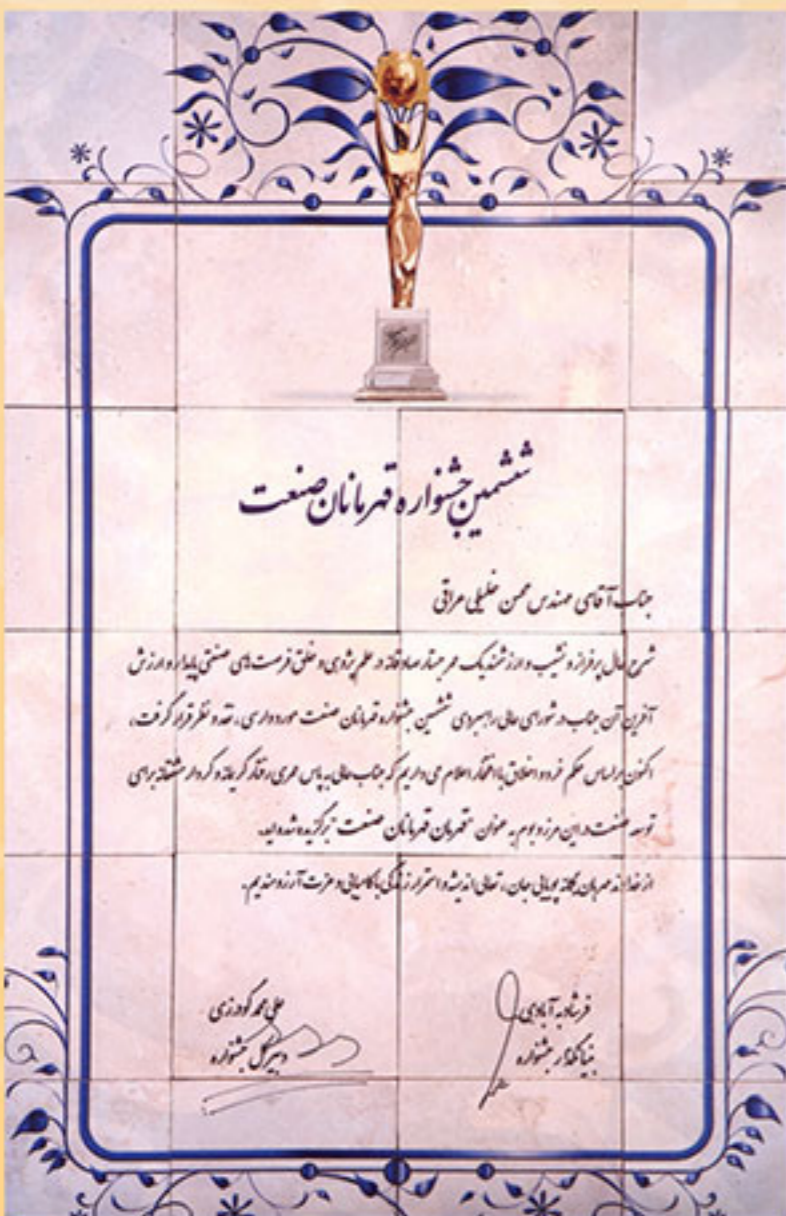 ششمین جشنواره قهرمانان صنعت
جناب آقای مهندس محسن خلیلی عراقی
شرح حال پر فراز و نشیب و ارزشمند یک عمر صادقانه در علم پژوهی و خلق فرصت های صنعتی پایدار و ارزش
آفرین آن جناب در شورای عالی راهبردی ششمین جشنواره قهرمانان صنعت مورد وارسی، نقد و نظر قرار گرفت،
اکنون بر اساس حکم خرد و اخلاق با افتخار اعلام می داریم که جناب عالی به پاس عمری رفتار کریمانه و کردار مشتقانه برای
توسعه صنعت در این مرز و بوم به عنوان "قهرمان قهرمانان صنعت" برگزیده شده اید.
از خداوند مهربان یگانه پویایی جان، تعالی اندیشه و استمرار زندگی با کامیابی و عزت آرزومندیم.
فرشاد به آبادی
بنیانگذار جشنواره
علی محمد گودرزی
دبیر کل جشنواره